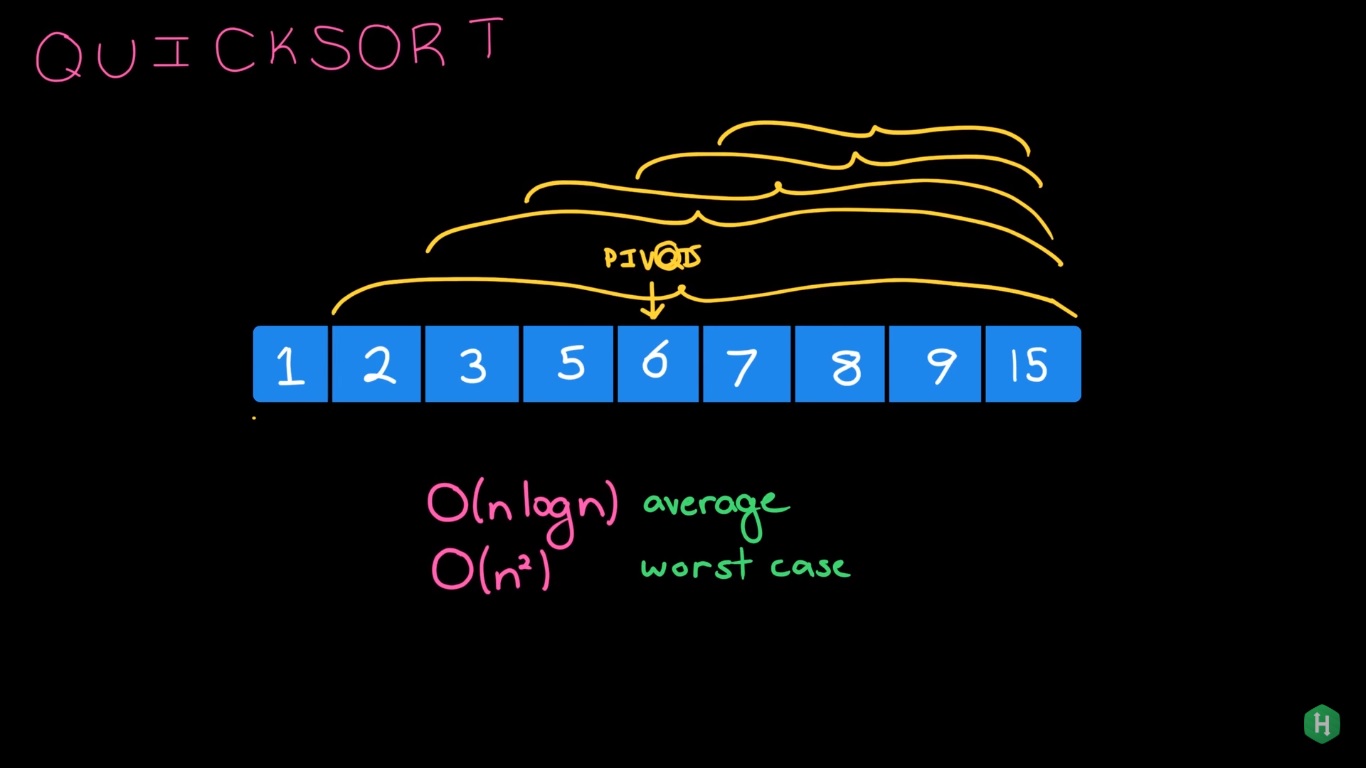 QUICKSORT
1 2 3 5 6 7 8 9 15
O(n log n) average
O(n²) worst case
H